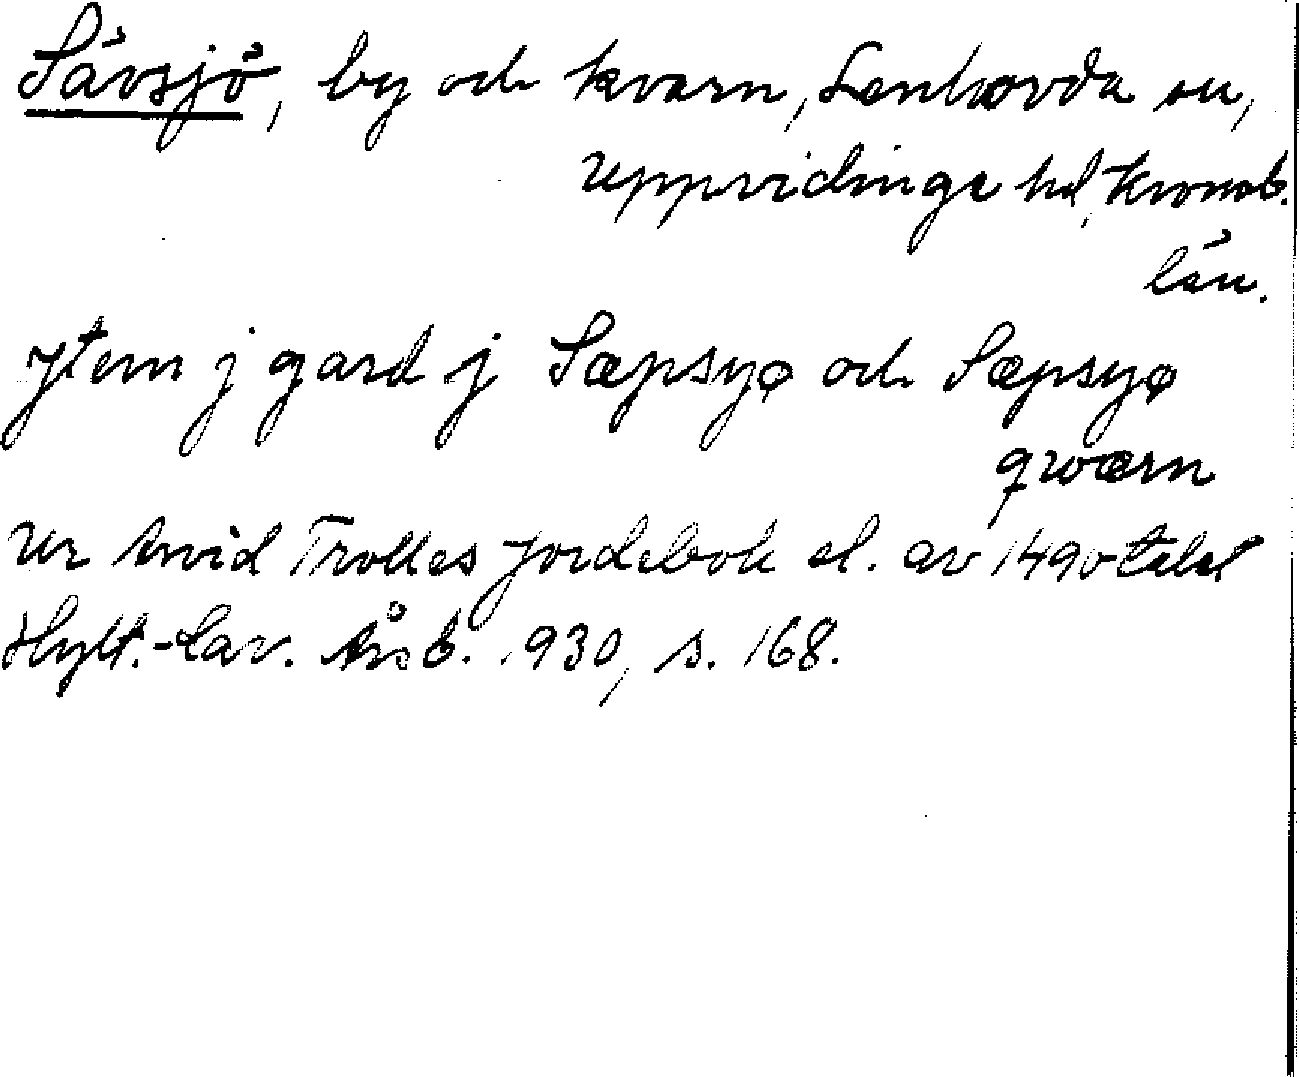 Sävsjö, by och kvarn, Lenhovda sn,
Uppvidinge hd, Kronob.
län.
ytem j gard j Sæpsyø och Sæpsyø
qwærn
Ur Arvid Trolles jordebok el. av 1490 talet
Hylt.-Cav. Årsb. 1930, s. 168.